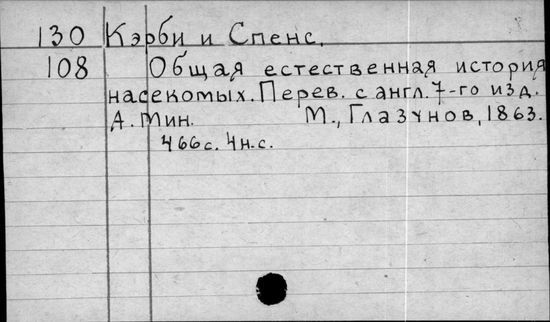 130 Кэрби и Спенс.
108 Общая естественная история
насекомых. Перев. с англ. 7-го изд.
А. Мин. М., Глазунов, 1863.
466 с. 4 н.с.